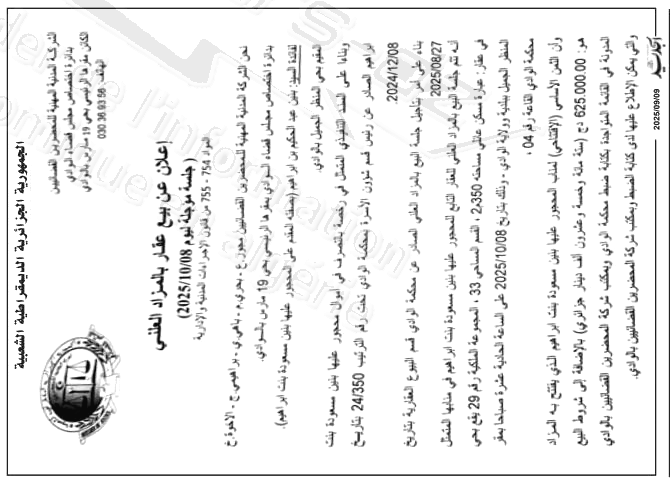 الجمهورية الجزائرية الديمقراطية الشعبية
الشركة المدنية المهنية للمحضرين القضائيين
بدائرة اختصاص مجلس قضاء الوادي
الكائن مقرها الرئيسي بحي 19 مارس بالوادي
الهاتف: 56 93 36 030
إعلان عن بيع عقار بالمزاد العلني
(جلسة مؤجلة ليوم 2025/10/08)
المواد 754 - 755 من قانون الإجراءات المدنية والإدارية
نحن الشركة المدنية المهنية للمحضرين القضائيين مجوري.ع - بحري.م - باهي.ي - براهيمي ح - الأخوة.ع
بدائرة اختصاص مجلس قضاء الوادي بمقرها الرئيسي بحي 19 مارس بالوادي.
لفائدة السيد: بنين عبد الحكيم بن ابراهيم (بصفته المقدم على المحجور عليها بنين مسعودة بنت ابراهيم).
المقيم بحي المنظر الجميل بالوادي.
وبناءا على السند التنفيذي المتمثل في رخصة بالتصرف في أموال محجور عليها بنين مسعودة بنت
ابراهيم الصادر عن رئيس قسم شؤون الأسرة بمحكمة الوادي تحت رقم الترتيب 24/350 بتاريخ
2024/12/08.
بناء على أمر بتأجيل جلسة البيع بالمزاد العلني الصادر عن محكمة الوادي قسم البيوع العقارية بتاريخ
2025/08/27
أنه تتم جلسة البيع بالمزاد العلني للعقار التابع للمحجور عليها بنين مسعودة بنت ابراهيم في منابها المتمثل
في عقار: عبارة مسكن عائلي مساحته 350م2 ، القسم المساحي 33 ، المجموعة الملكية رقم 29 يقع بحي
المنظر الجميل ببلدية وولاية الوادي - وذلك بتاريخ 2025/10/08 على الساعة الحادية عشرة صباحا بمقر
محكمة الوادي القاعة رقم 04 ،
وأن الثمن الأساسي (الإفتتاحي) لمناب المحجور عليها بنين مسعودة بنت ابراهيم الذي يفتتح به المزاد
هو: 625.000.00 دج (ستة مائة وخمسة وعشرون ألف دينار جزائري) بالإضافة إلى شروط البيع
المدونة في القائمة المتواجدة بكتابة ضبط محكمة الوادي وبمكتب شركة المحضرين القضائيين بالوادي
والتي يمكن الإطلاع عليها لدى كتابة الضبط وبمكتب شركة المحضرين القضائيين بالوادي.
2025/09/09